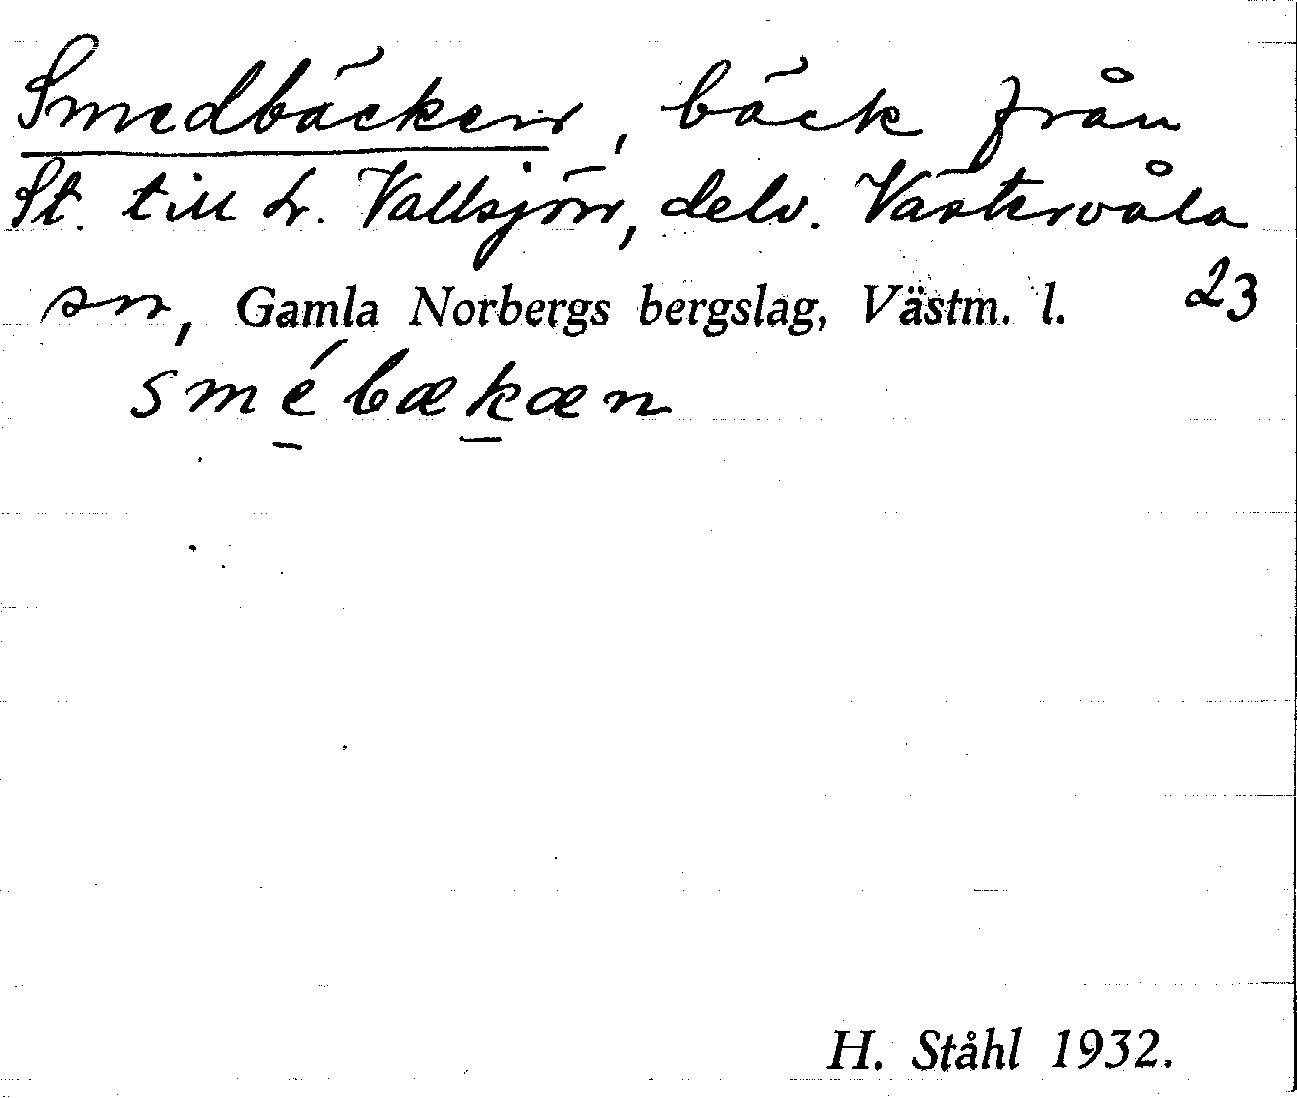 Smedbäcken, bäck från
St. till L. Vallsjön, delv. Västervåla
sn, Gamla Norbergs bergslag, Västm. l. 23
smé̱bæḵæn
H. Ståhl 1932.